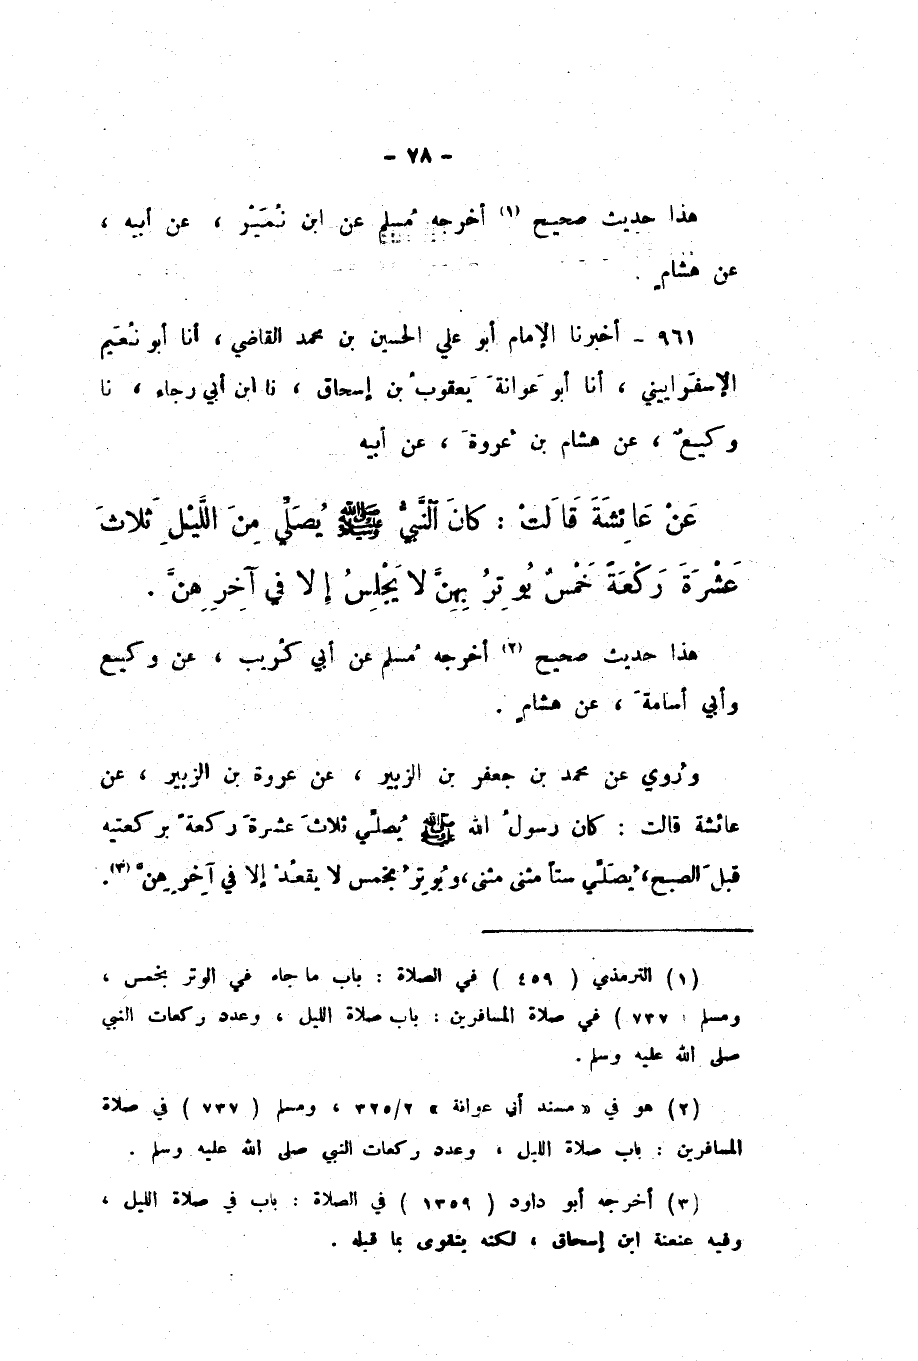 - ٧٨ -
هذا حديث صحيح (١) أخرجه مُسلم عن ابن نُمَيْر ، عن أبيه ،
عن هشامٍ .
٩٦١ - أخبرنا الإمام أبو علي الحسين بن محمد القاضي ، أنا أبو نُعَيم
الإسفَرايِيني ، أنا أبو عَوانةَ يَعقوبُ بن إسحاق ، نا ابن أبي رجاء ، نا
وكيعٌ ، عن هشام بن عُروةَ ، عن أبيه
عَنْ عَائِشَةَ قَالَتْ : كانَ ٱلنَّبِيُّ ﷺ يُصَلِّي مِنَ اللَّيْلِ ثَلاثَ
عَشْرَةَ رَكْعَةً خَمْسٌ يُوتِرُ بِهِنَّ لا يَجْلِسُ إلا في آخِرِهِنَّ .
هذا حديث صحيح (٢) أخرجه مُسلم عن أبي كُريب ، عن وكيع
وأبي أسامةَ ، عن هشامٍ .
ورُوي عن محمد بن جعفر بن الزبير ، عن عروة بن الزبير ، عن
عائشة قالت : كان رسولُ الله ﷺ يُصلّي ثلاثَ عشرةَ ركعةً بركعتيه
قبلَ الصبح ، يُصَلِّي ستاً مثنى مثنى ، ويُوتِرُ بخمس لا يقعُدْ إلا في آخرِهِنَّ (٣) .
(١) الترمذي ( ٤٥٩ ) في الصلاة : باب ما جاء في الوتر بخمس ،
ومسلم ( ٧٣٧ ) في صلاة المسافرين : باب صلاة الليل ، وعدد ركعات النبي
صلى الله عليه وسلم .
(٢) هو في « مسند أبي عوانة » ٣٢٥/٢ ، ومسلم ( ٧٣٧ ) في صلاة
المسافرين : باب صلاة الليل ، وعدد ركعات النبي صلى الله عليه وسلم .
(٣) أخرجه أبو داود ( ١٣٥٩ ) في الصلاة : باب في صلاة الليل ،
وفيه عنعنة ابن إسحاق ، لكنه يتقوى بما قبله .